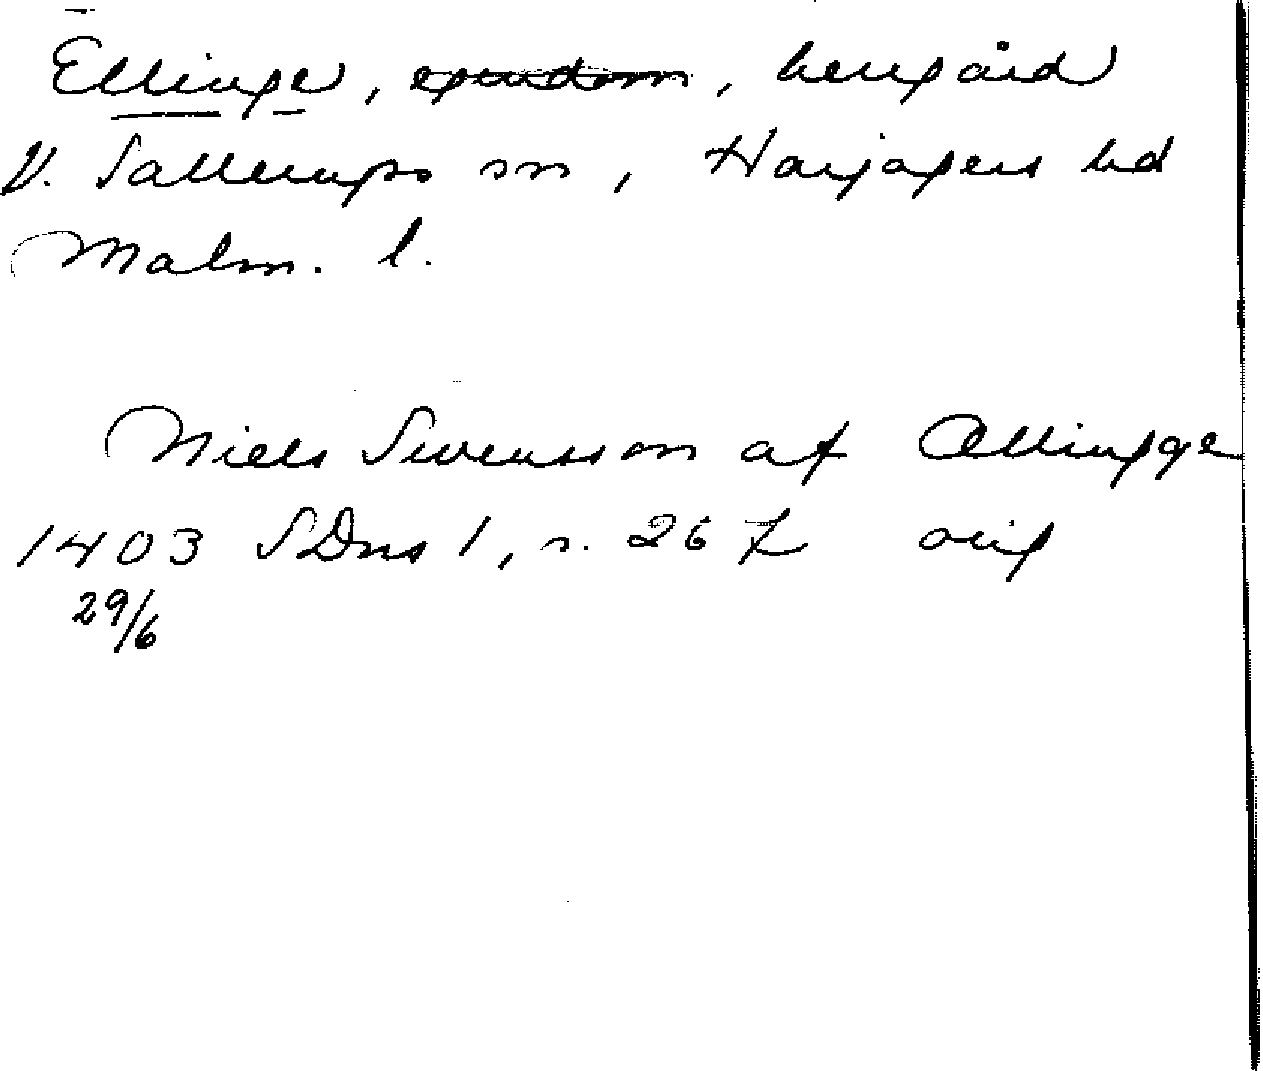 Ellinge, egendom, herrgård
V. Sallerups sn, Harjagers hd
Malm. l.
Niels Swensson af Ellingge
1403 SDns 1, s. 267 orig
29/6